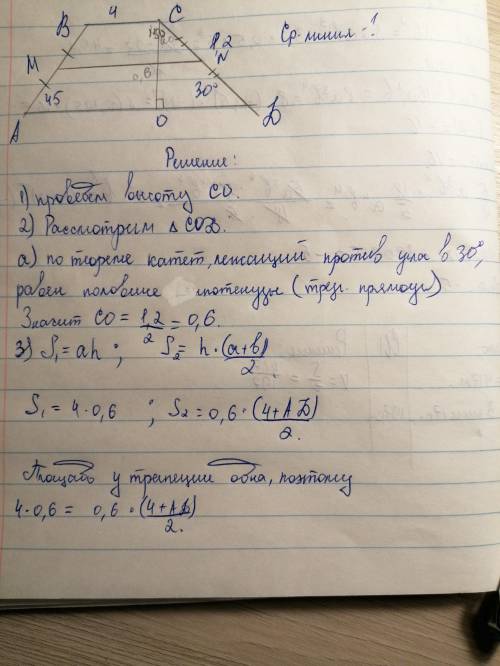 B 4 C
Ср. линия - ?
M 1,2
N
0,6
45 30°
A O D
Решение:
1) проведём высоту CO.
2) Рассмотрим △ COD.
а) по теореме катет, лежащий против угла в 30°,
равен половине гипотенузы (треуг. прямоуг)
Значит CO = 1,2/2 = 0,6.
3) S₁ = ah ; S₂ = h · (a+b)/2
S₁ = 4 · 0,6 ; S₂ = 0,6 · (4+AD)/2.
Площадь у трапеции одна, поэтому
4 · 0,6 = 0,6 · (4+AD)/2.